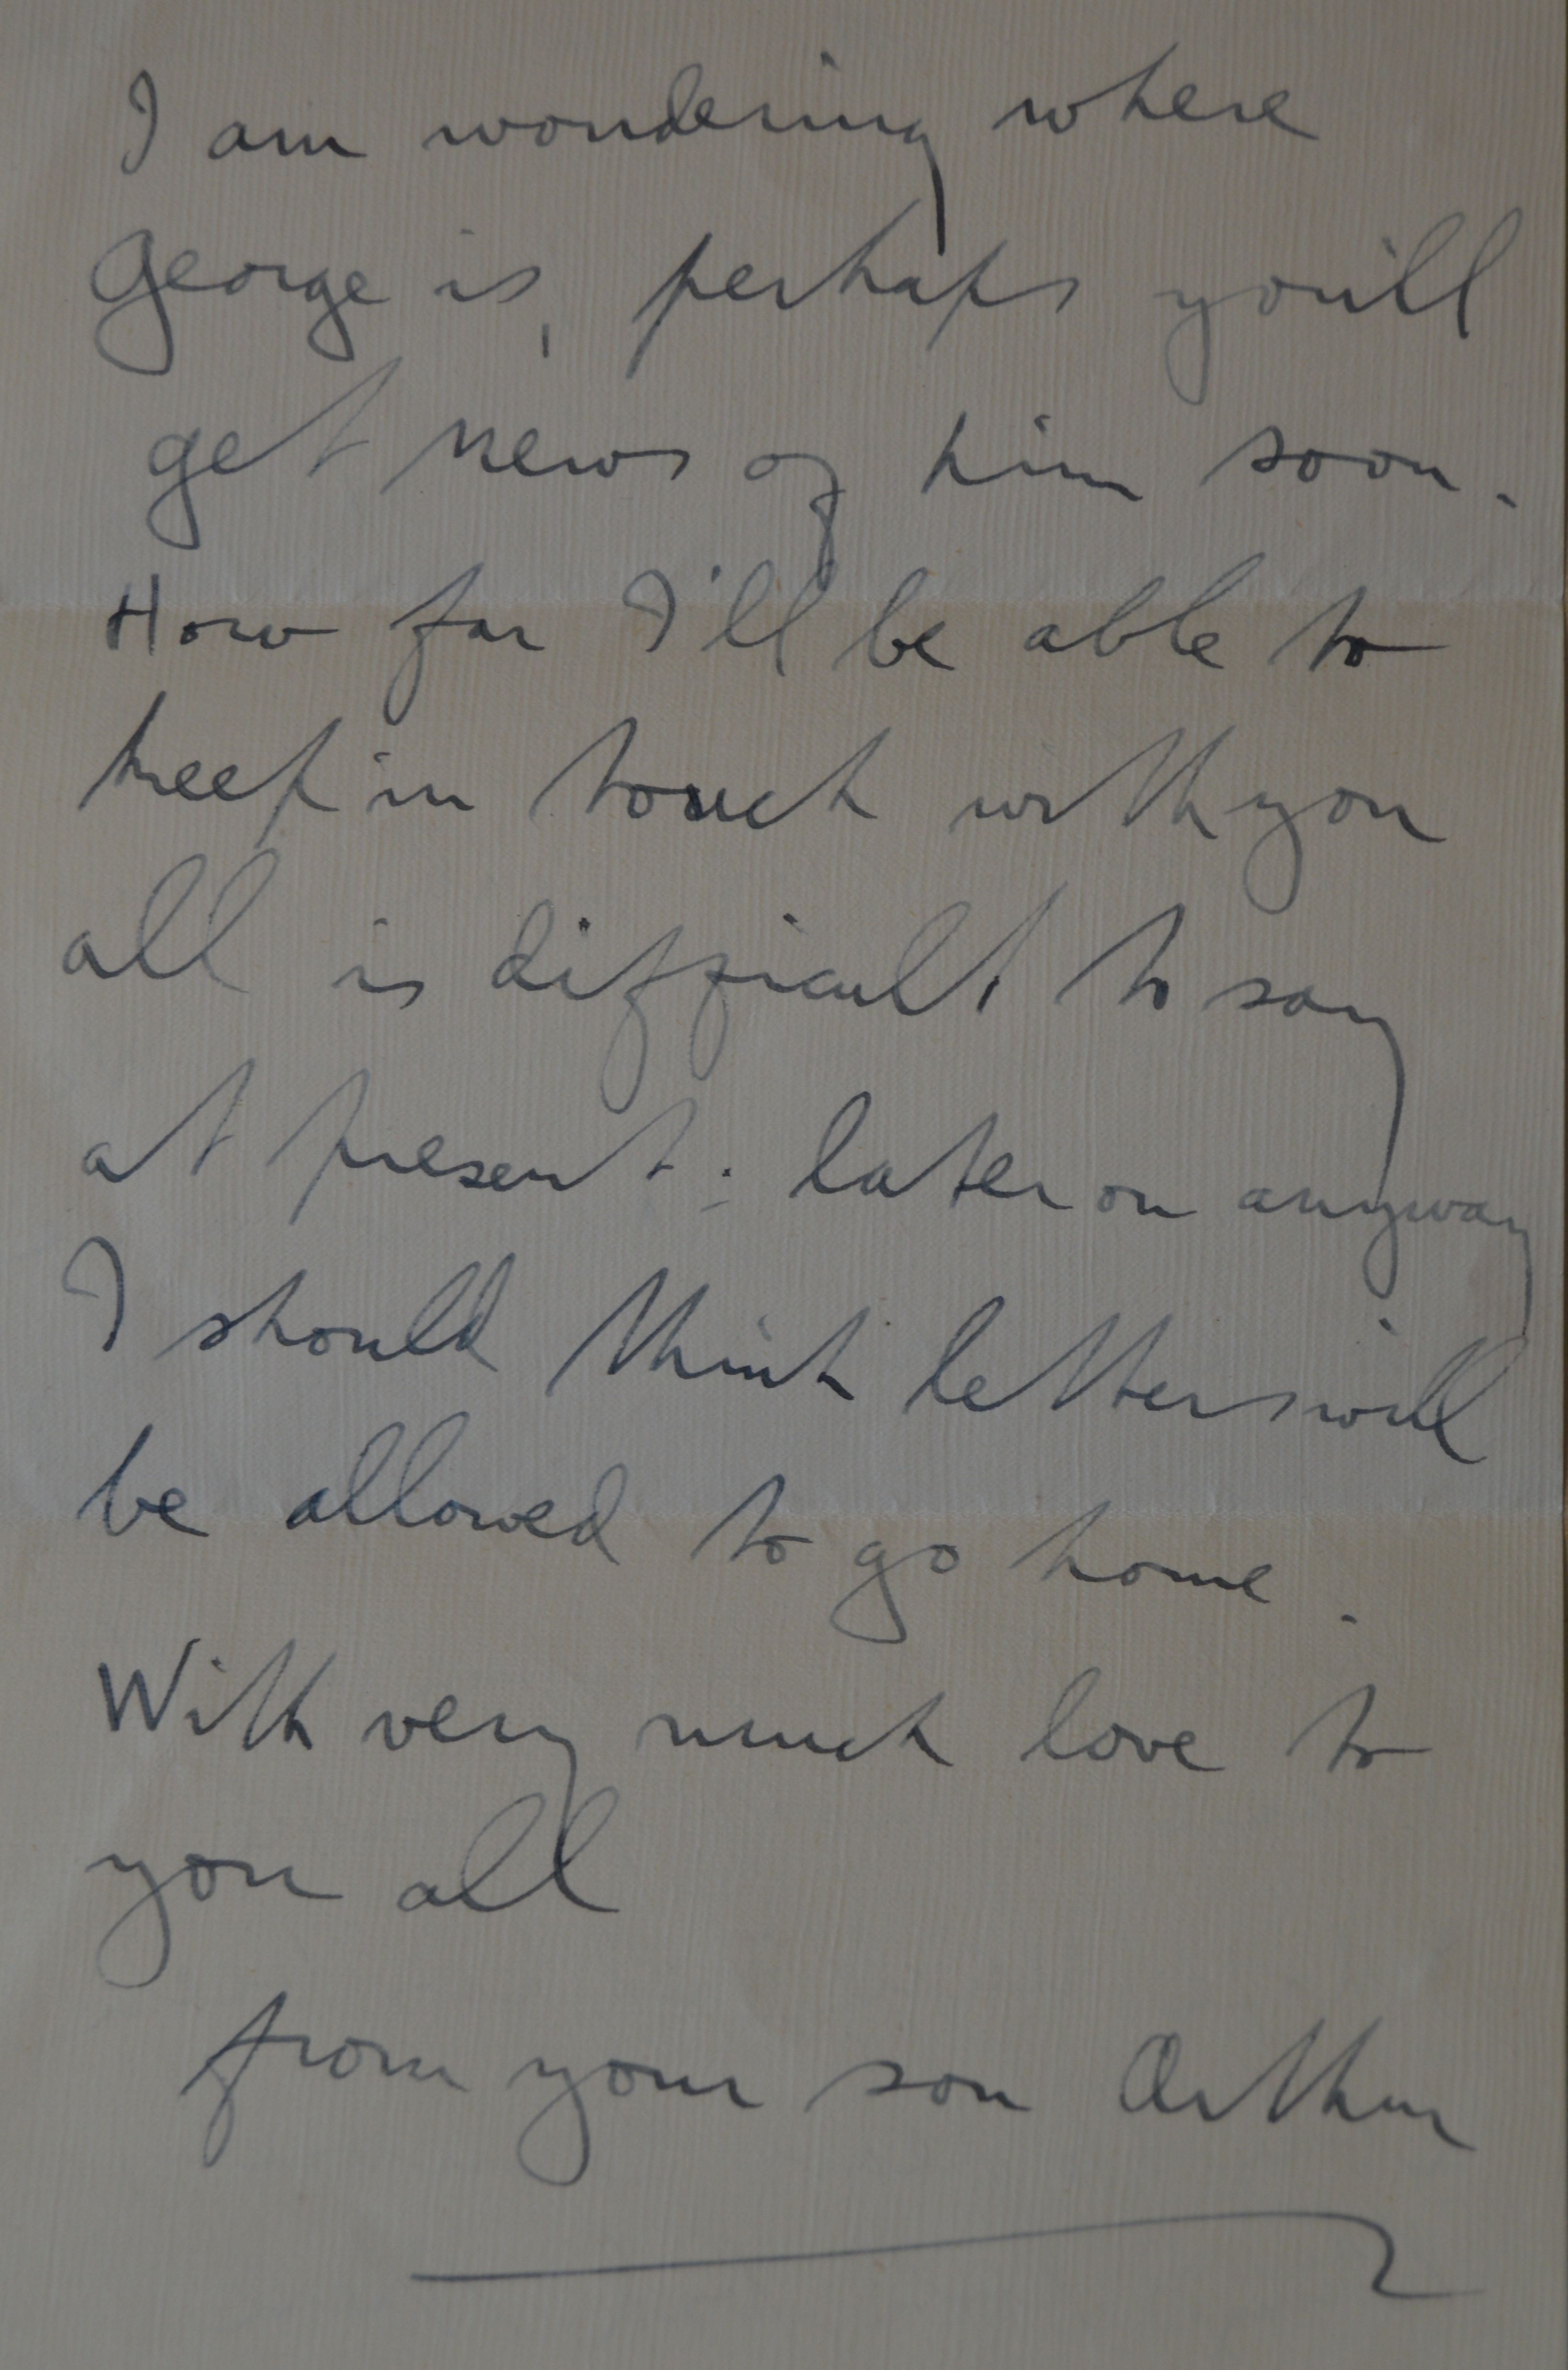 I am wondering where
George is, perhaps you'll
get news of him soon.
How far I'll be able to
keep in touch with you
all is difficult to say
at present; later on anyway
I should think letters will
be allowed to go home.
With very much love to
you all
from your son Arthur